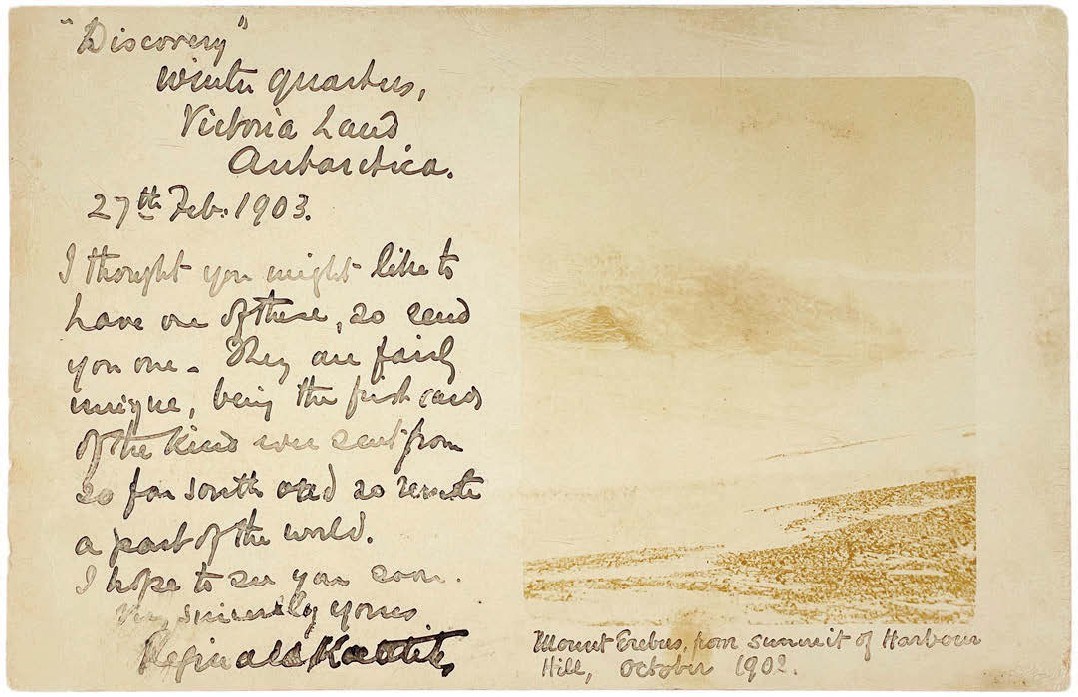 "Discovery"
Winter quarters,
Victoria Land
Antarctica.
27th Feb. 1903.
I thought you might like to
have one of these, so send
you one. They are fairly
unique, being the first cards
of the kind ever sent from
so far south and so remote
a part of the world.
I hope to see you soon.
Very sincerely yours
Reginald Koettlitz
Mount Erebus, from summit of Harbour
Hill, October 1902.